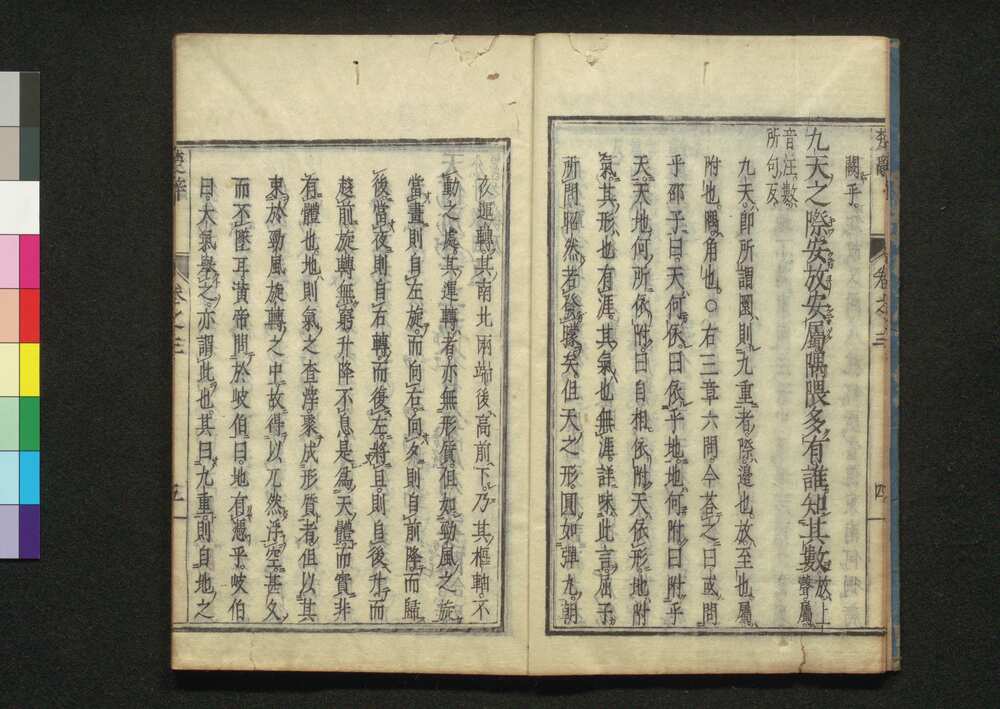 闕乎
九天之際安放安屬隅隈多有誰知其數放上聲屬
音注數
所句反
九天即所謂圜則九重者際邊也放至也屬
附也隅角也○右三章六問今荅之曰或問
乎邵子曰天何依曰依乎地地何附曰附乎
天天地何所依附曰自相依附天依形地附
氣其形也有涯其氣也無涯詳味此言屈子
所問昭然若發矇矣但天之形圓如彈丸朝
夜運轉其南北兩端後高前下乃其樞軸不
動之處其運轉者亦無形質但如勁風之旋
當晝則自左旋而向右向夕則自前降而歸
後當夜則自右轉而復左將旦則自後升而
趍前旋轉無窮升降不息是爲天體而實非
有體也地則氣之查滓聚成形質者但以其
束於勁風旋轉之中故得以兀然浮空甚久
而不墜耳黃帝問於岐伯曰地有憑乎岐伯
曰大氣舉之亦謂此也其曰九重則自地之
卷之三
四
卷之三
五